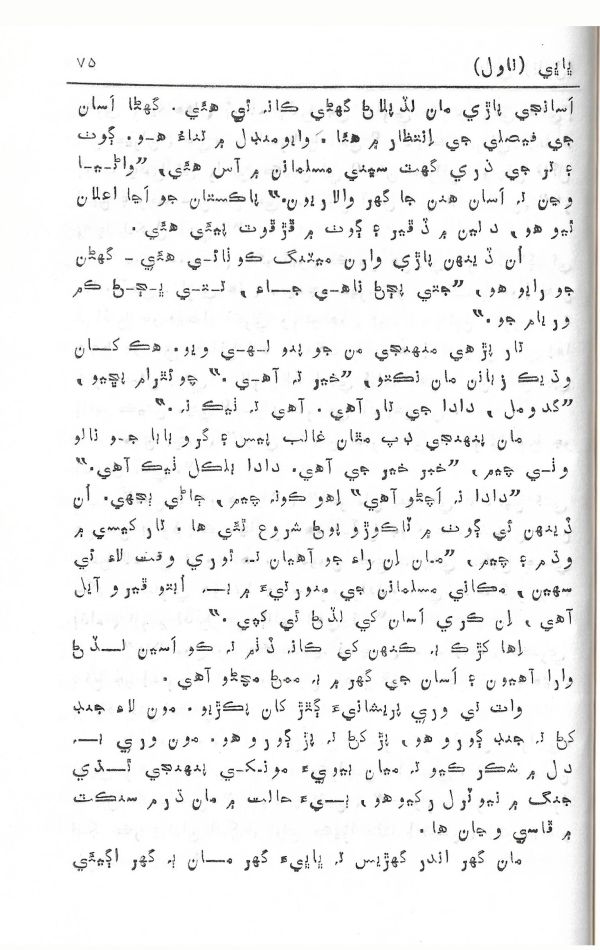 ڀاڀي (ناول) ۷۵
اَسانجي پاڙي مان لڏپلاڻ گهڻي ڪانہ ٿي هئي. گهڻا اَسان
جي فيصلي جي اِنتظار ۾ هئا. وايومنڊل ۾ تناءُ هو. ڳوٺ
۽ ٿر جي ذري گهٽ سڀني مسلمانن ۾ آس هئي، ”واڻيا
وڃن تہ اَسان هنن جا گهر والاريون.“ پاڪستان جو اَڃا اعلان
ٿيو هو، دلين ۾ ڏڦير ۽ ڳوٺ ۾ ڦڙڦوٽ پيئي هئي.
اُن ڏينهن پاڙي وارن ميٽنگ ڪوٺائي هئي - گهڻن
جو رايو هو، ”جتي پڄڻ ناهي جاءِ، تتي ڀڄڻ ڪم
وريام جو.“
تار پڙهي منهنجي من جو پنو لهي ويو. هڪ کان
وڌيڪ زبانن مان نڪتو، ”خير تہ آهي.“ چوئٿرام پڇيو،
”گدومل، دادا جي تار آهي. آهي تہ ٺيڪ نہ.“
مان پنهنجي ڊپ مٿان غالب پيس ۽ گرو بابا جو نالو
وٺي چيم، ”خبر خير جي آهي. دادا بلڪل ٺيڪ آهي.“
”دادا تہ اَچڻو آهي“ اِهو ڪونہ چيم، ڄاڻي ٻجهي. اُن
ڏينهن ئي ڳوٺ ۾ ٽاڪوڙو پوڻ شروع ٿئي ها. تار کيسي ۾
وڌم ۽ چيم، ”مان اِن راءِ جو آهيان تہ ٿوري وقت لاءِ ئي
سهين، مڪاني مسلمانن جي منورٿيءَ ۾ بہ اُبتو ڦيرو آيل
آهي، اِن ڪري اَسان کي لڏڻ ئي کپي.“
اِها کڙڪ بہ ڪنهن کي ڪانہ ڏنم تہ ڪو اَسين لڏڻ
وارا آهيون ۽ اَسان جي گهر ۾ بہ ممڻ مچڻو آهي.
واٽ تي وري پريشانيءَ ڳٿڙ کان پڪڙيو. مون لاءِ جنڊ
کڻ تہ جنڊ ڳورو هو، پڙ کڻ تہ پڙ ڳورو هو. مون وري بہ
دل ۾ شڪر ڪيو تہ ميان ٻيويءَ مونکي پنهنجي ٿڌي
جنگ ۾ نيوٽرل رکيو هو، ٻيءَ حالت ۾ مان ڌرم سنڪٽ
۾ ڦاسي وڃان ها.
مان گهر اندر گهڙيس تہ ڀاڀيءَ گهر مان بہ گهر اڳيئي